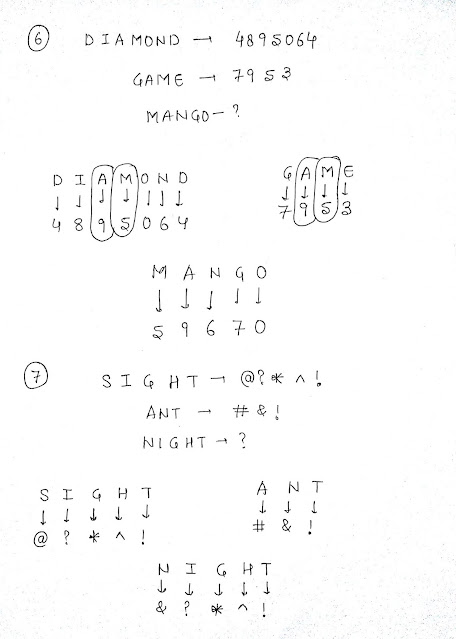 6 DIAMOND → 4895064
GAME → 7953
MANGO - ?
D I A M O N D
↓ ↓ ↓ ↓ ↓ ↓ ↓
4 8 9 5 0 6 4
G A M E
↓ ↓ ↓ ↓
7 9 5 3
M A N G O
↓ ↓ ↓ ↓ ↓
5 9 6 7 0
7 SIGHT → @?*^!
ANT → #&!
NIGHT → ?
S I G H T
↓ ↓ ↓ ↓ ↓
@ ? * ^ !
A N T
↓ ↓ ↓
# & !
N I G H T
↓ ↓ ↓ ↓ ↓
& ? * ^ !